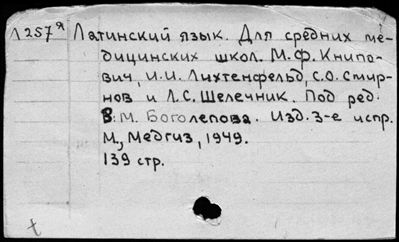 Л 257я Латинский язык. Для средних ме-
дицинских школ. М.Ф. Книпо-
вич, И.И. Лихтенфельд, С.О. Смир-
нов и Л.С. Шелечник. Под ред.
В.М. Боголепова. Изд. 3-е испр.
М., Медгиз, 1949.
139 стр.
t